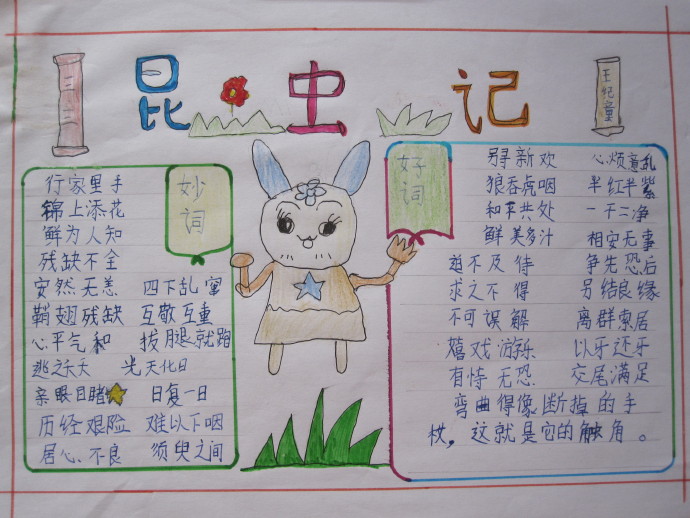 昆虫记
三二
王纪童
妙词
行家里手
锦上添花
鲜为人知
残缺不全
安然无恙 四下乱窜
鞘翅残缺 互敬互重
心平气和 拔腿就跑
逃之夭夭 光天化日
亲眼目睹 日复一日
历经艰险 难以下咽
居心不良 须臾之间
好词
另寻新欢 心烦意乱
狼吞虎咽 半红半紫
和平共处 一干二净
鲜美多汁 相安无事
迫不及待 争先恐后
求之不得 另结良缘
不可误解 离群索居
嬉戏游乐 以牙还牙
有恃无恐 交尾满足
弯曲得像断掉的手
杖，这就是它的触角。